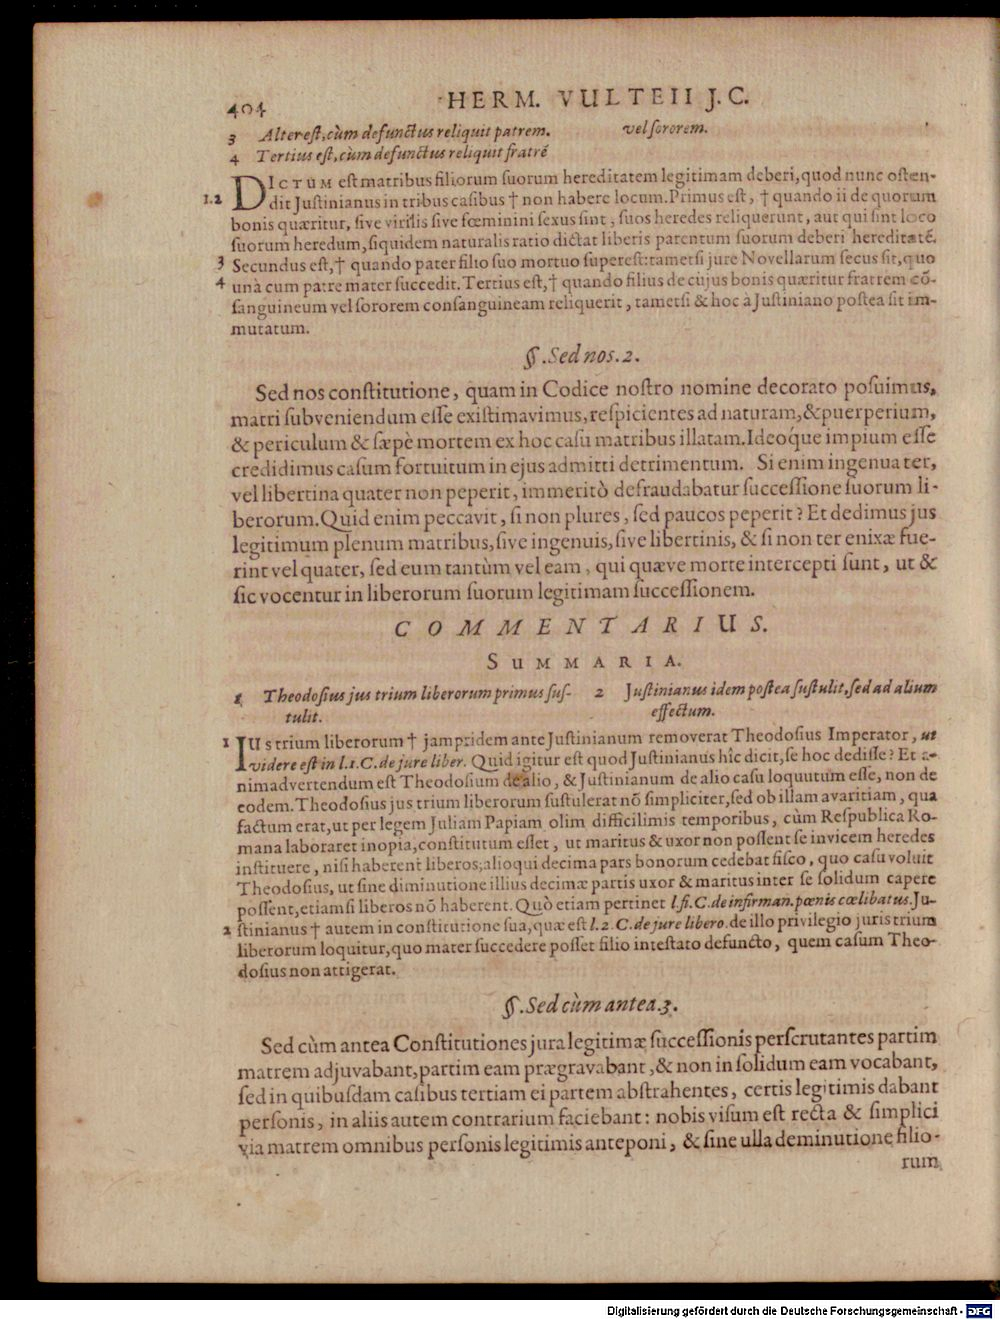 404 HERM. VULTEII J.C.
3 Alter est, cùm defunctus reliquit patrem.
4 Tertius est, cùm defunctus reliquit fratrē
vel sororem.
DICTUM est matribus filiorum suorum hereditatem legitimam deberi, quod nunc osten-
1.2 dit Justinianus in tribus casibus † non habere locum. Primus est, † quando ii de quorum
bonis quæritur, sive virilis sive fœminini sexus sint, suos heredes reliquerunt, aut qui sint loco
suorum heredum, siquidem naturalis ratio dictat liberis parentum suorum deberi hereditatē.
3 Secundus est, † quando pater filio suo mortuo superest: tametsi jure Novellarum secus sit, quo
4 unà cum patre mater succedit. Tertius est, † quando filius de cujus bonis quæritur fratrem cō-
sanguineum vel sororem consanguineam reliquerit, tametsi & hoc à Justiniano postea sit im-
mutatum.
§. Sed nos. 2.
Sed nos constitutione, quam in Codice nostro nomine decorato posuimus,
matri subveniendum esse existimavimus, respicientes ad naturam, & puerperium,
& periculum & sæpè mortem ex hoc casu matribus illatam. Ideoq́ue impium esse
credidimus casum fortuitum in ejus admitti detrimentum. Si enim ingenua ter,
vel libertina quater non peperit, immeritò defraudabatur successione suorum li-
berorum. Quid enim peccavit, si non plures, sed paucos peperit? Et dedimus jus
legitimum plenum matribus, sive ingenuis, sive libertinis, & si non ter enixæ fue-
rint vel quater, sed eum tantùm vel eam, qui quæve morte intercepti sunt, ut &
sic vocentur in liberorum suorum legitimam successionem.
COMMENTARIUS.
SUMMARIA.
1 Theodosius jus trium liberorum primus sus-
tulit.
2 Justinianus idem postea sustulit, sed ad alium
effectum.
1 JUS trium liberorum † jampridem ante Justinianum removerat Theodosius Imperator, ut
videre est in l.1.C. de jure liber. Quid igitur est quod Justinianus hîc dicit, se hoc dedisse? Et a-
nimadvertendum est Theodosium de alio, & Justinianum de alio casu loquutum esse, non de
eodem. Theodosius jus trium liberorum sustulerat nō simpliciter, sed ob illam avaritiam, qua
factum erat, ut per legem Juliam Papiam olim difficilimis temporibus, cùm Respublica Ro-
mana laboraret inopia, constitutum esset, ut maritus & uxor non possent se invicem heredes
instituere, nisi haberent liberos; alioqui decima pars bonorum cedebat fisco, quo casu voluit
Theodosius, ut sine diminutione illius decimæ partis uxor & maritus inter se solidum capere
possent, etiamsi liberos nō haberent. Quò etiam pertinet l. fi. C. de infirman. pœnis cœlibatus. Ju-
2 stinianus † autem in constitutione sua, quæ est l.2. C. de jure libero. de illo privilegio juris trium
liberorum loquitur, quo mater succedere posset filio intestato defuncto, quem casum Theo-
dosius non attigerat.
§. Sed cùm antea. 3.
Sed cùm antea Constitutiones jura legitimæ successionis perscrutantes partim
matrem adjuvabant, partim eam prægravabant, & non in solidum eam vocabant,
sed in quibusdam casibus tertiam ei partem abstrahentes, certis legitimis dabant
personis, in aliis autem contrarium faciebant: nobis visum est recta & simplici
via matrem omnibus personis legitimis anteponi, & sine ulla deminutione filio-
rum
Digitalisierung gefördert durch die Deutsche Forschungsgemeinschaft - DFG